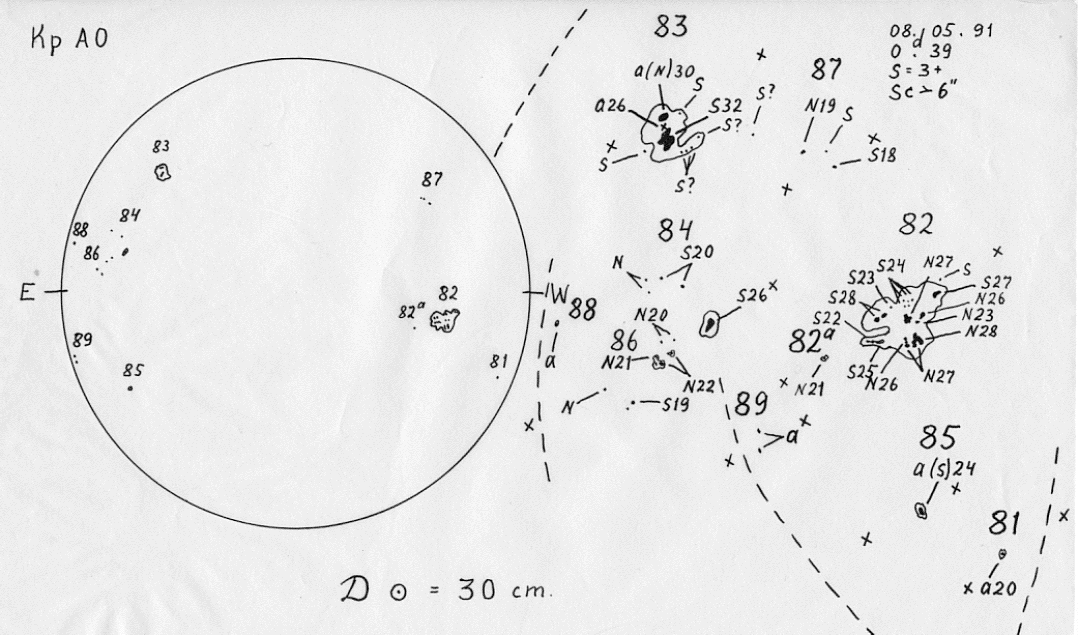 Kp AO
83
88
84
86
87
82ᵃ
82
E
W
89
85
81
D ⊙ = 30 cm.
83
a(N)30
S
S?
a26
S32
S?
S
S?
87
N19
S
S18
08. 05. 91
0ᵈ. 39
S = 3+
84
N
S20
S26
N20
86
N21
N22
N
S19
88
a
82
N27
S
S24
S23
S27
S28
N26
S22
N23
N28
82ᵃ
N21
S25
N26
N27
89
a
85
a(s)24
81
a20